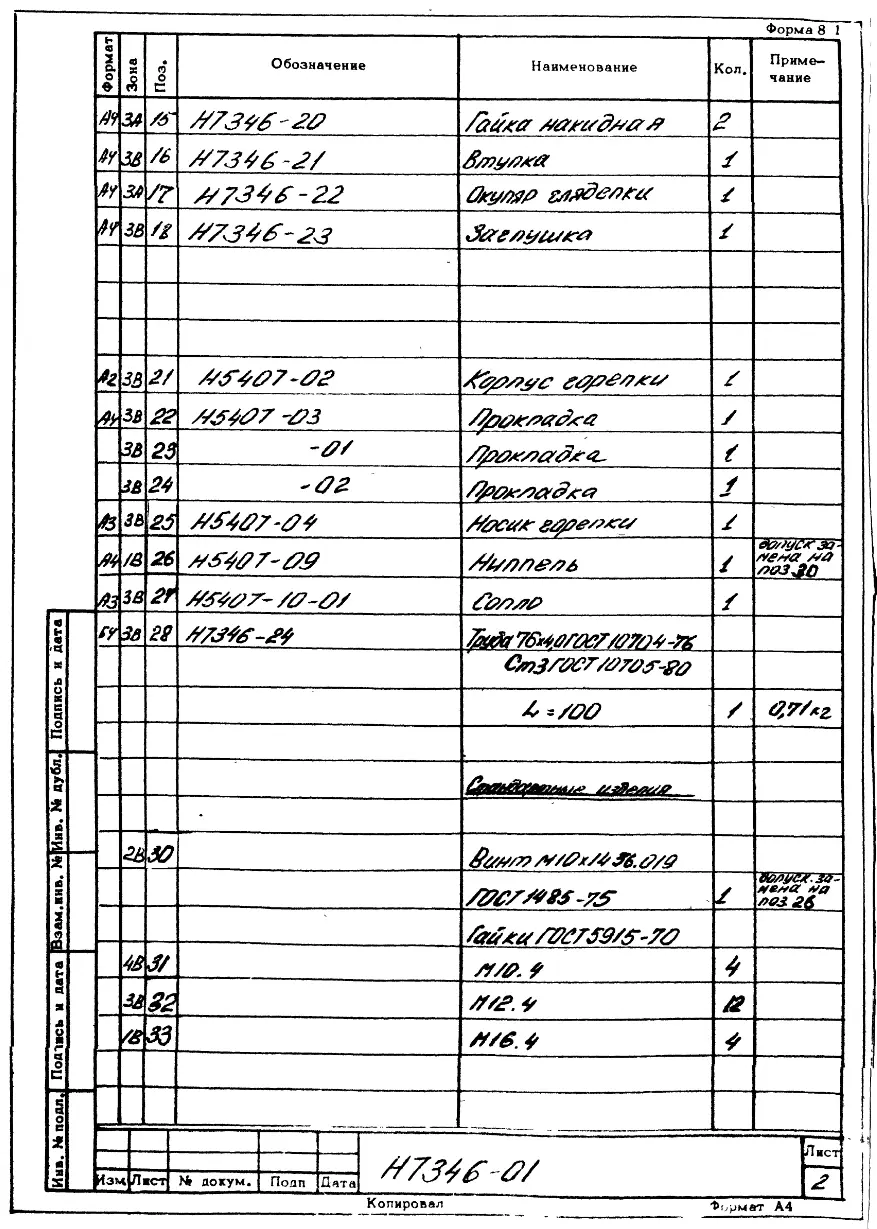 Форма 8 1
Формат Зона Поз. Обозначение Наименование Кол. Приме–
чание
А4 3А 15 Н7346-20 Гайка накидная 2
А4 3В 16 Н7346-21 Втулка 1
А4 3А 17 Н7346-22 Окуляр гляделки 1
А4 3В 18 Н7346-23 Заглушка 1
А2 3В 21 Н5407-02 Корпус горелки 1
А4 3В 22 Н5407-03 Прокладка 1
3В 23 -01 Прокладка 1
3В 24 -02 Прокладка 1
А3 3В 25 Н5407-04 Носик горелки 1
А4 1В 26 Н5407-09 Ниппель 1 допуск за-
мена на
поз 30
А3 3В 27 Н5407-10-01 Сопло 1
БЧ 3В 28 Н7346-24 Труба 76х4,0 ГОСТ 10704-76
Ст3 ГОСТ 10705-80
L=100 1 0,71кг
Стандартные изделия
2В 30 Винт М10х14 36.019
ГОСТ 1485-75 1 допуск. за-
мена на
поз. 26
Гайки ГОСТ 5915-70
4В 31 М10.4 4
3В 32 М12.4 12
1В 33 М16.4 4
Инв. № подл. Подпись и дата Взам.инв. № Инв. № дубл. Подпись и дата
Н7346-01
Лист
2
Изм Лист № докум. Подп Дата
Копировал Формат А4